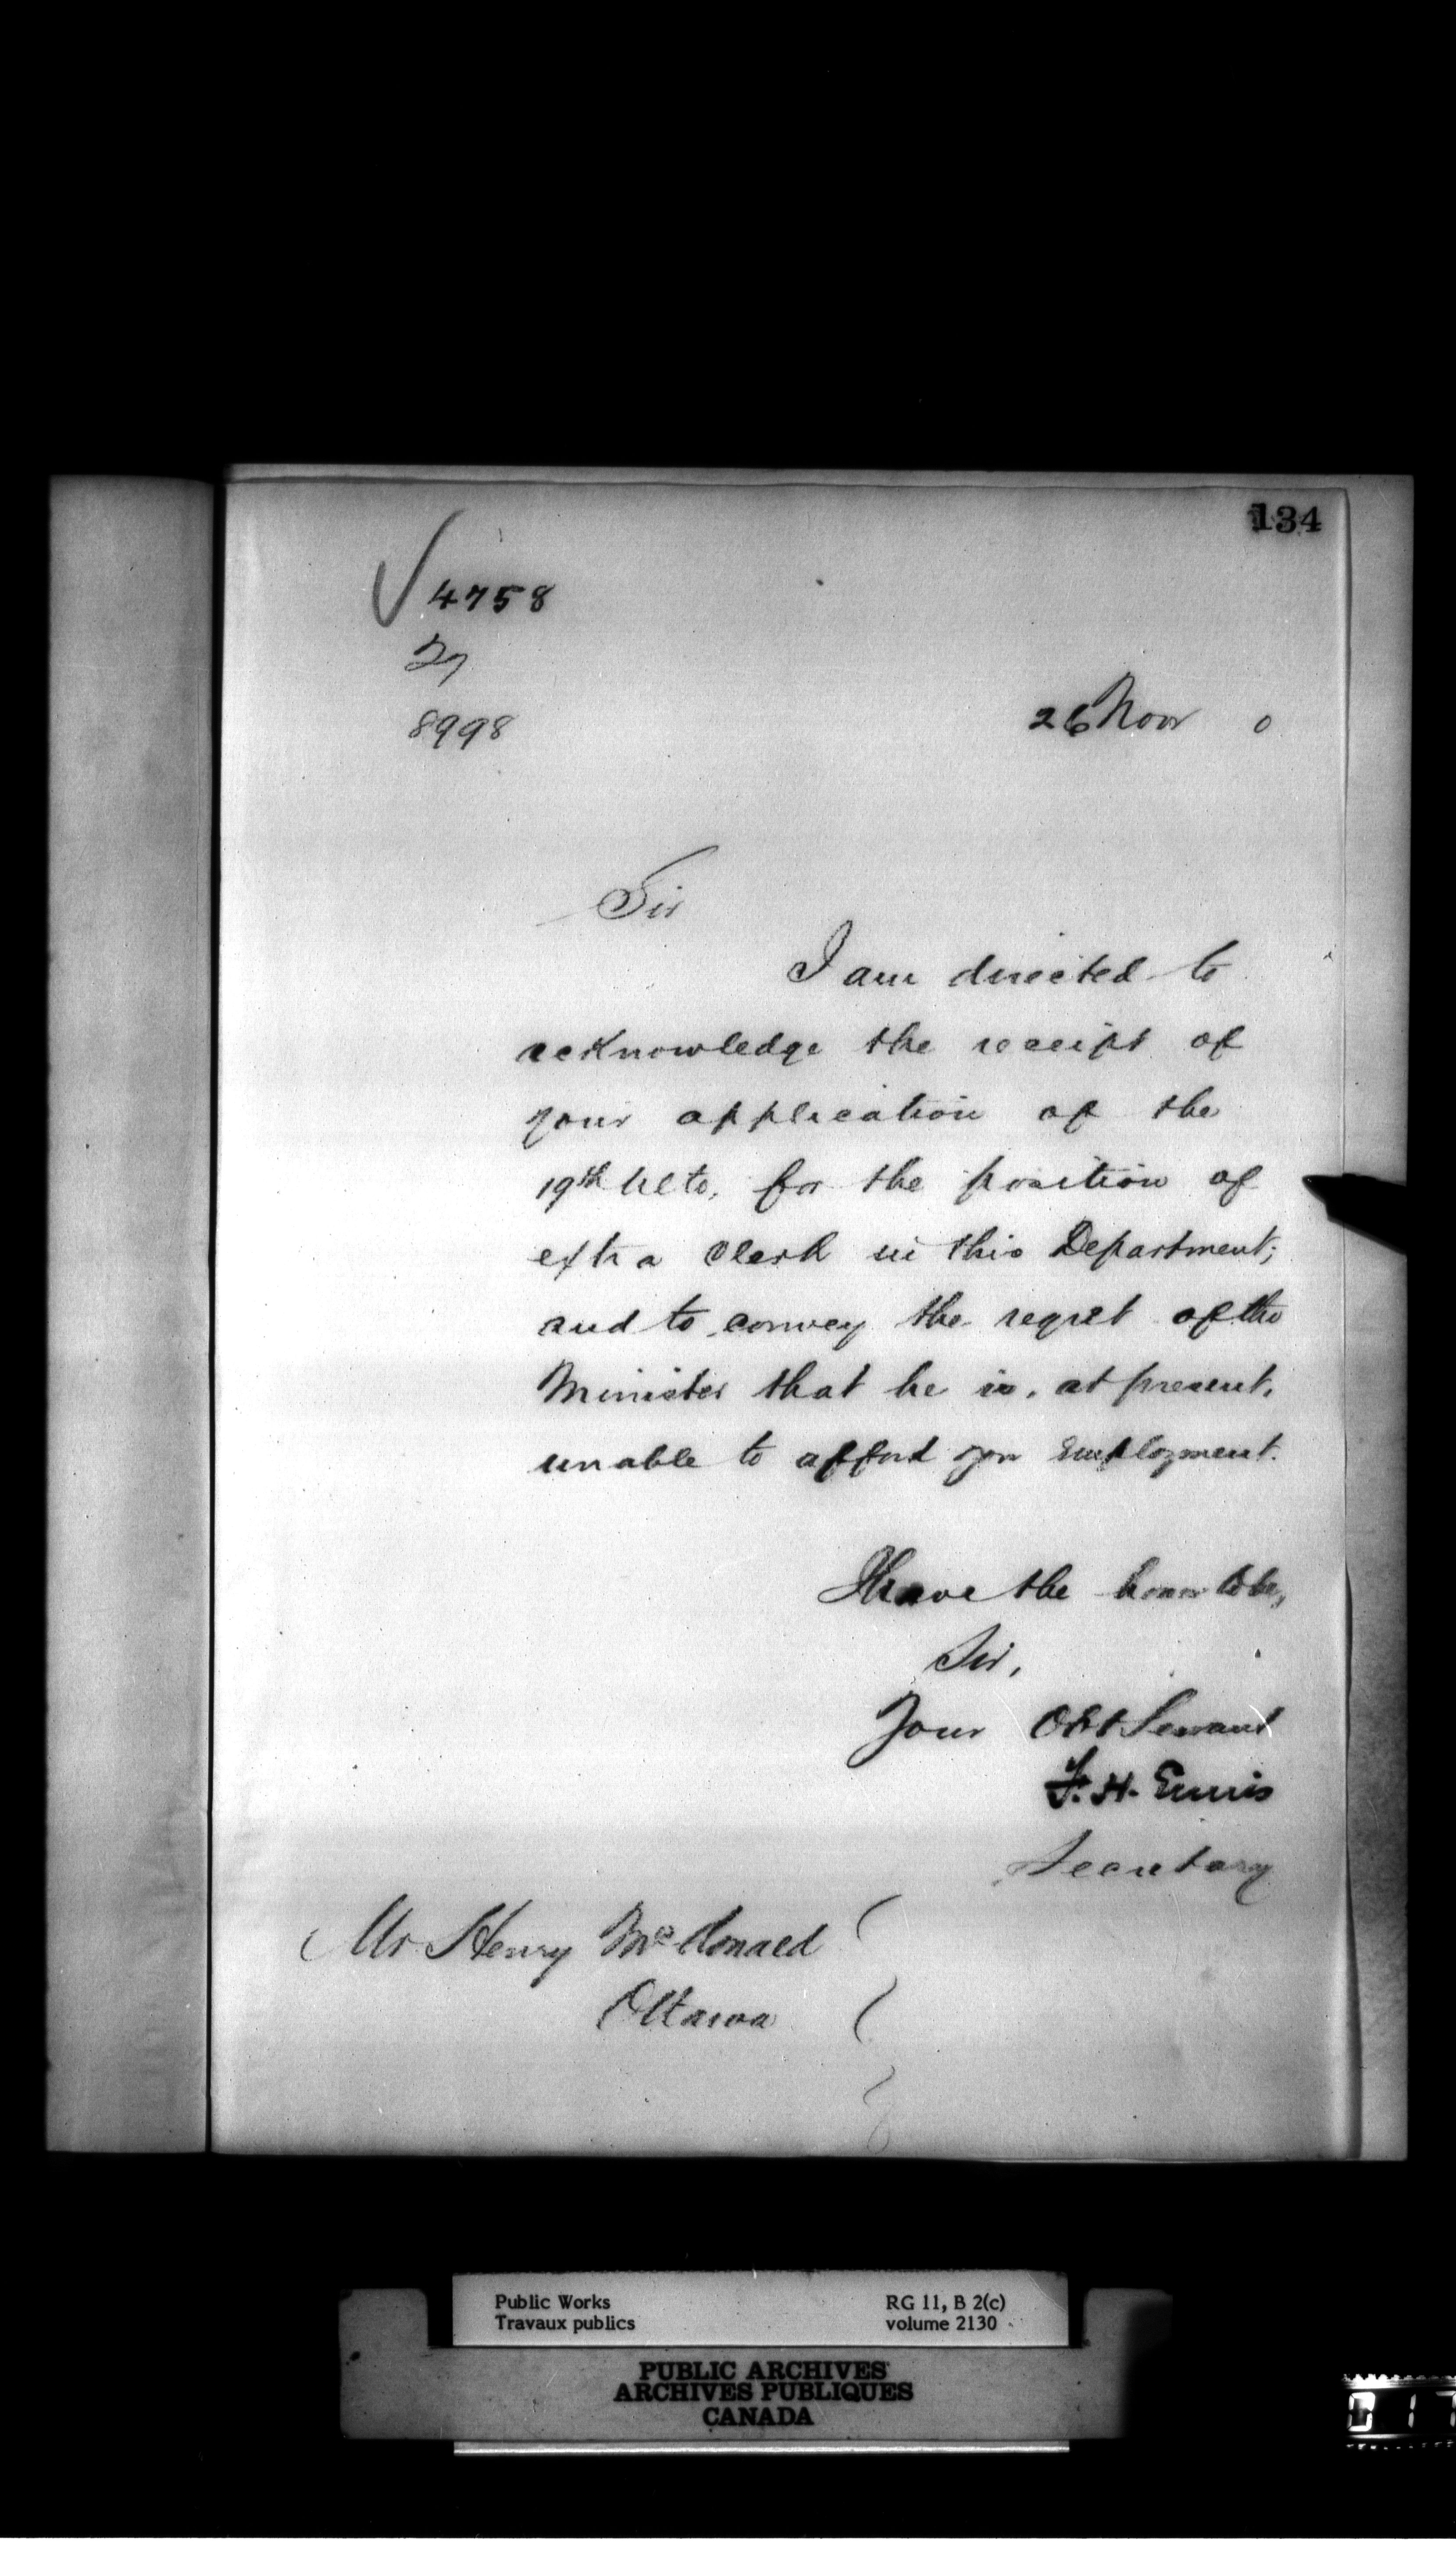 134
4758
27
8998
26 Novr 0
Sir
I am directed to
acknowledge the receipt of
your application of the
19th Ulto, for the position of
extra Clerk in this Department;
and to convey the regret of the
Minister that he is, at present,
unable to afford you Employment.
I have the honor to be,
Sir,
Your Obt Servant
F. H. Ennis
Secretary
Mr Henry McDonald
Ottawa
Public Works
Travaux publics
RG 11, B 2(c)
volume 2130
PUBLIC ARCHIVES
ARCHIVES PUBLIQUES
CANADA